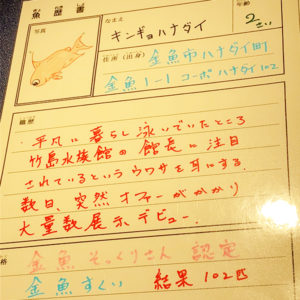 魚歴書
ぎょ れき しょ
写真
なまえ
キンギョハナダイ
年齢
2さい
住所(出身)
金魚市ハナダイ町
金魚1-1 コーポハナダイ102
職歴
平凡に暮らし泳いでいたところ
竹島水族館の館長に注目
されているというウワサを耳にする
数日、突然オファーがかかり
大量数展示デビュー。
格
金魚そっくりさん 認定
金魚すくい 結果102匹